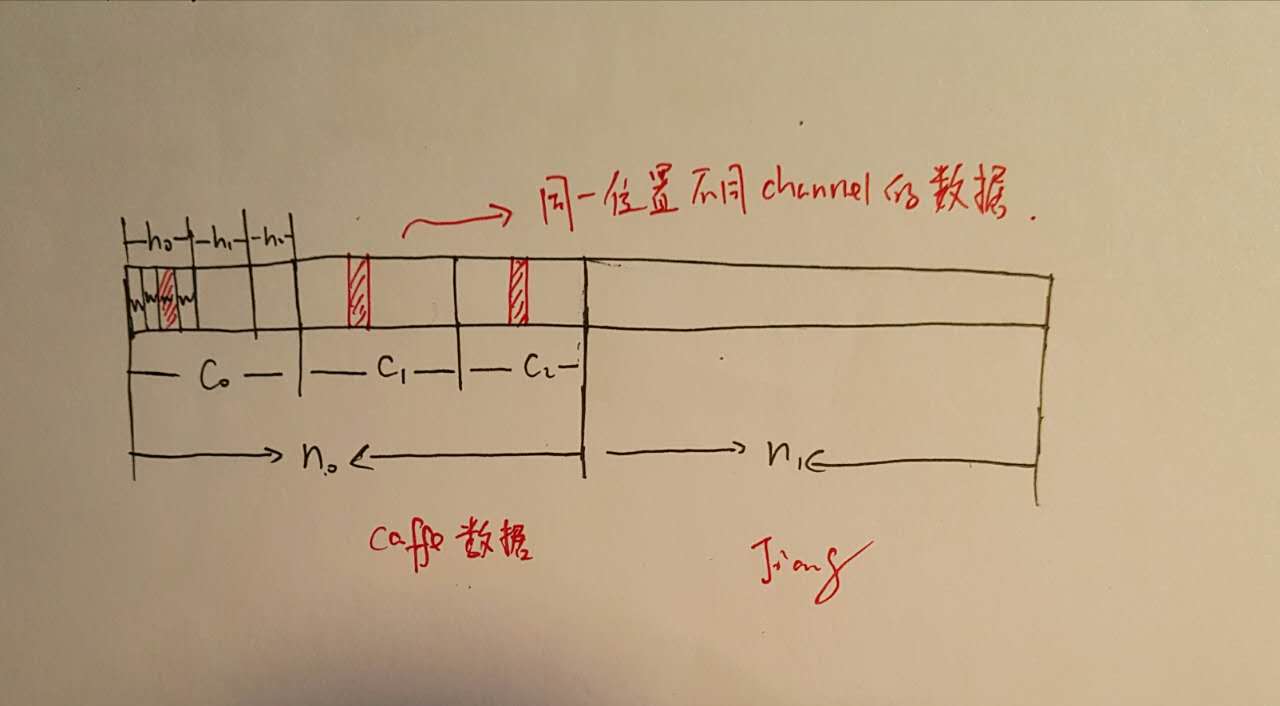 同一位置不同channel的数据.
h₀ h₁ h₂
w w w w
C₀ C₁ C₂
n₀ n₁
Caffe数据 Jiang